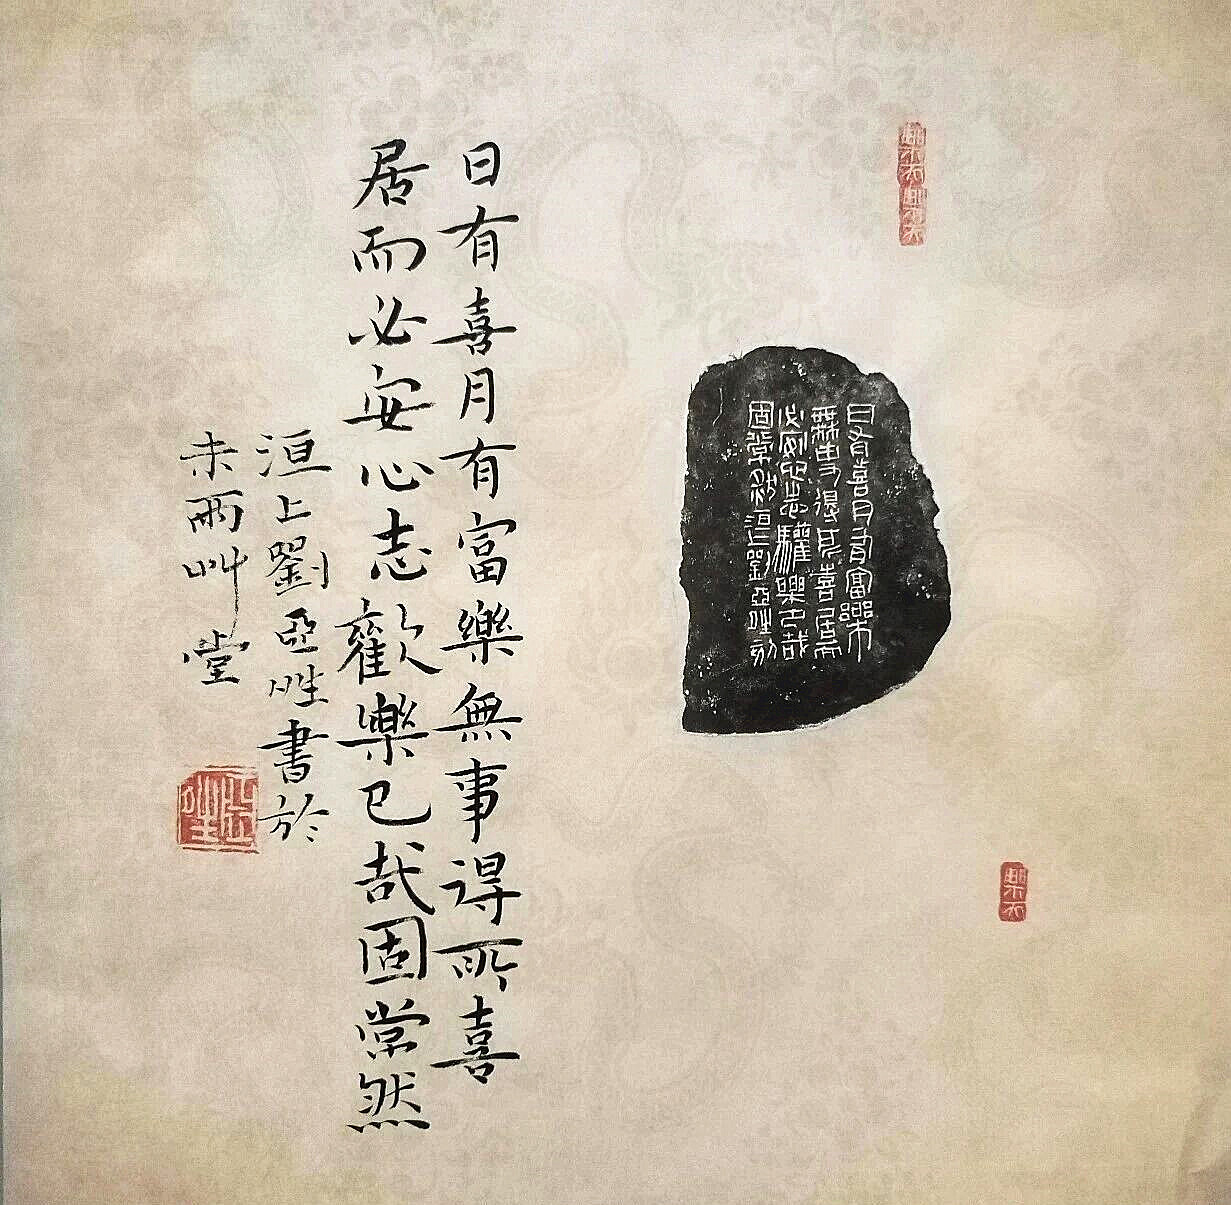 日有喜月有富樂
無事得其喜居而
必安心志驩樂已哉
固常然洹上劉亞甡刻
日有喜月有富樂無事得所喜
居而必安心志歡樂已哉固常然
洹上劉亞甡書於
未雨艸堂